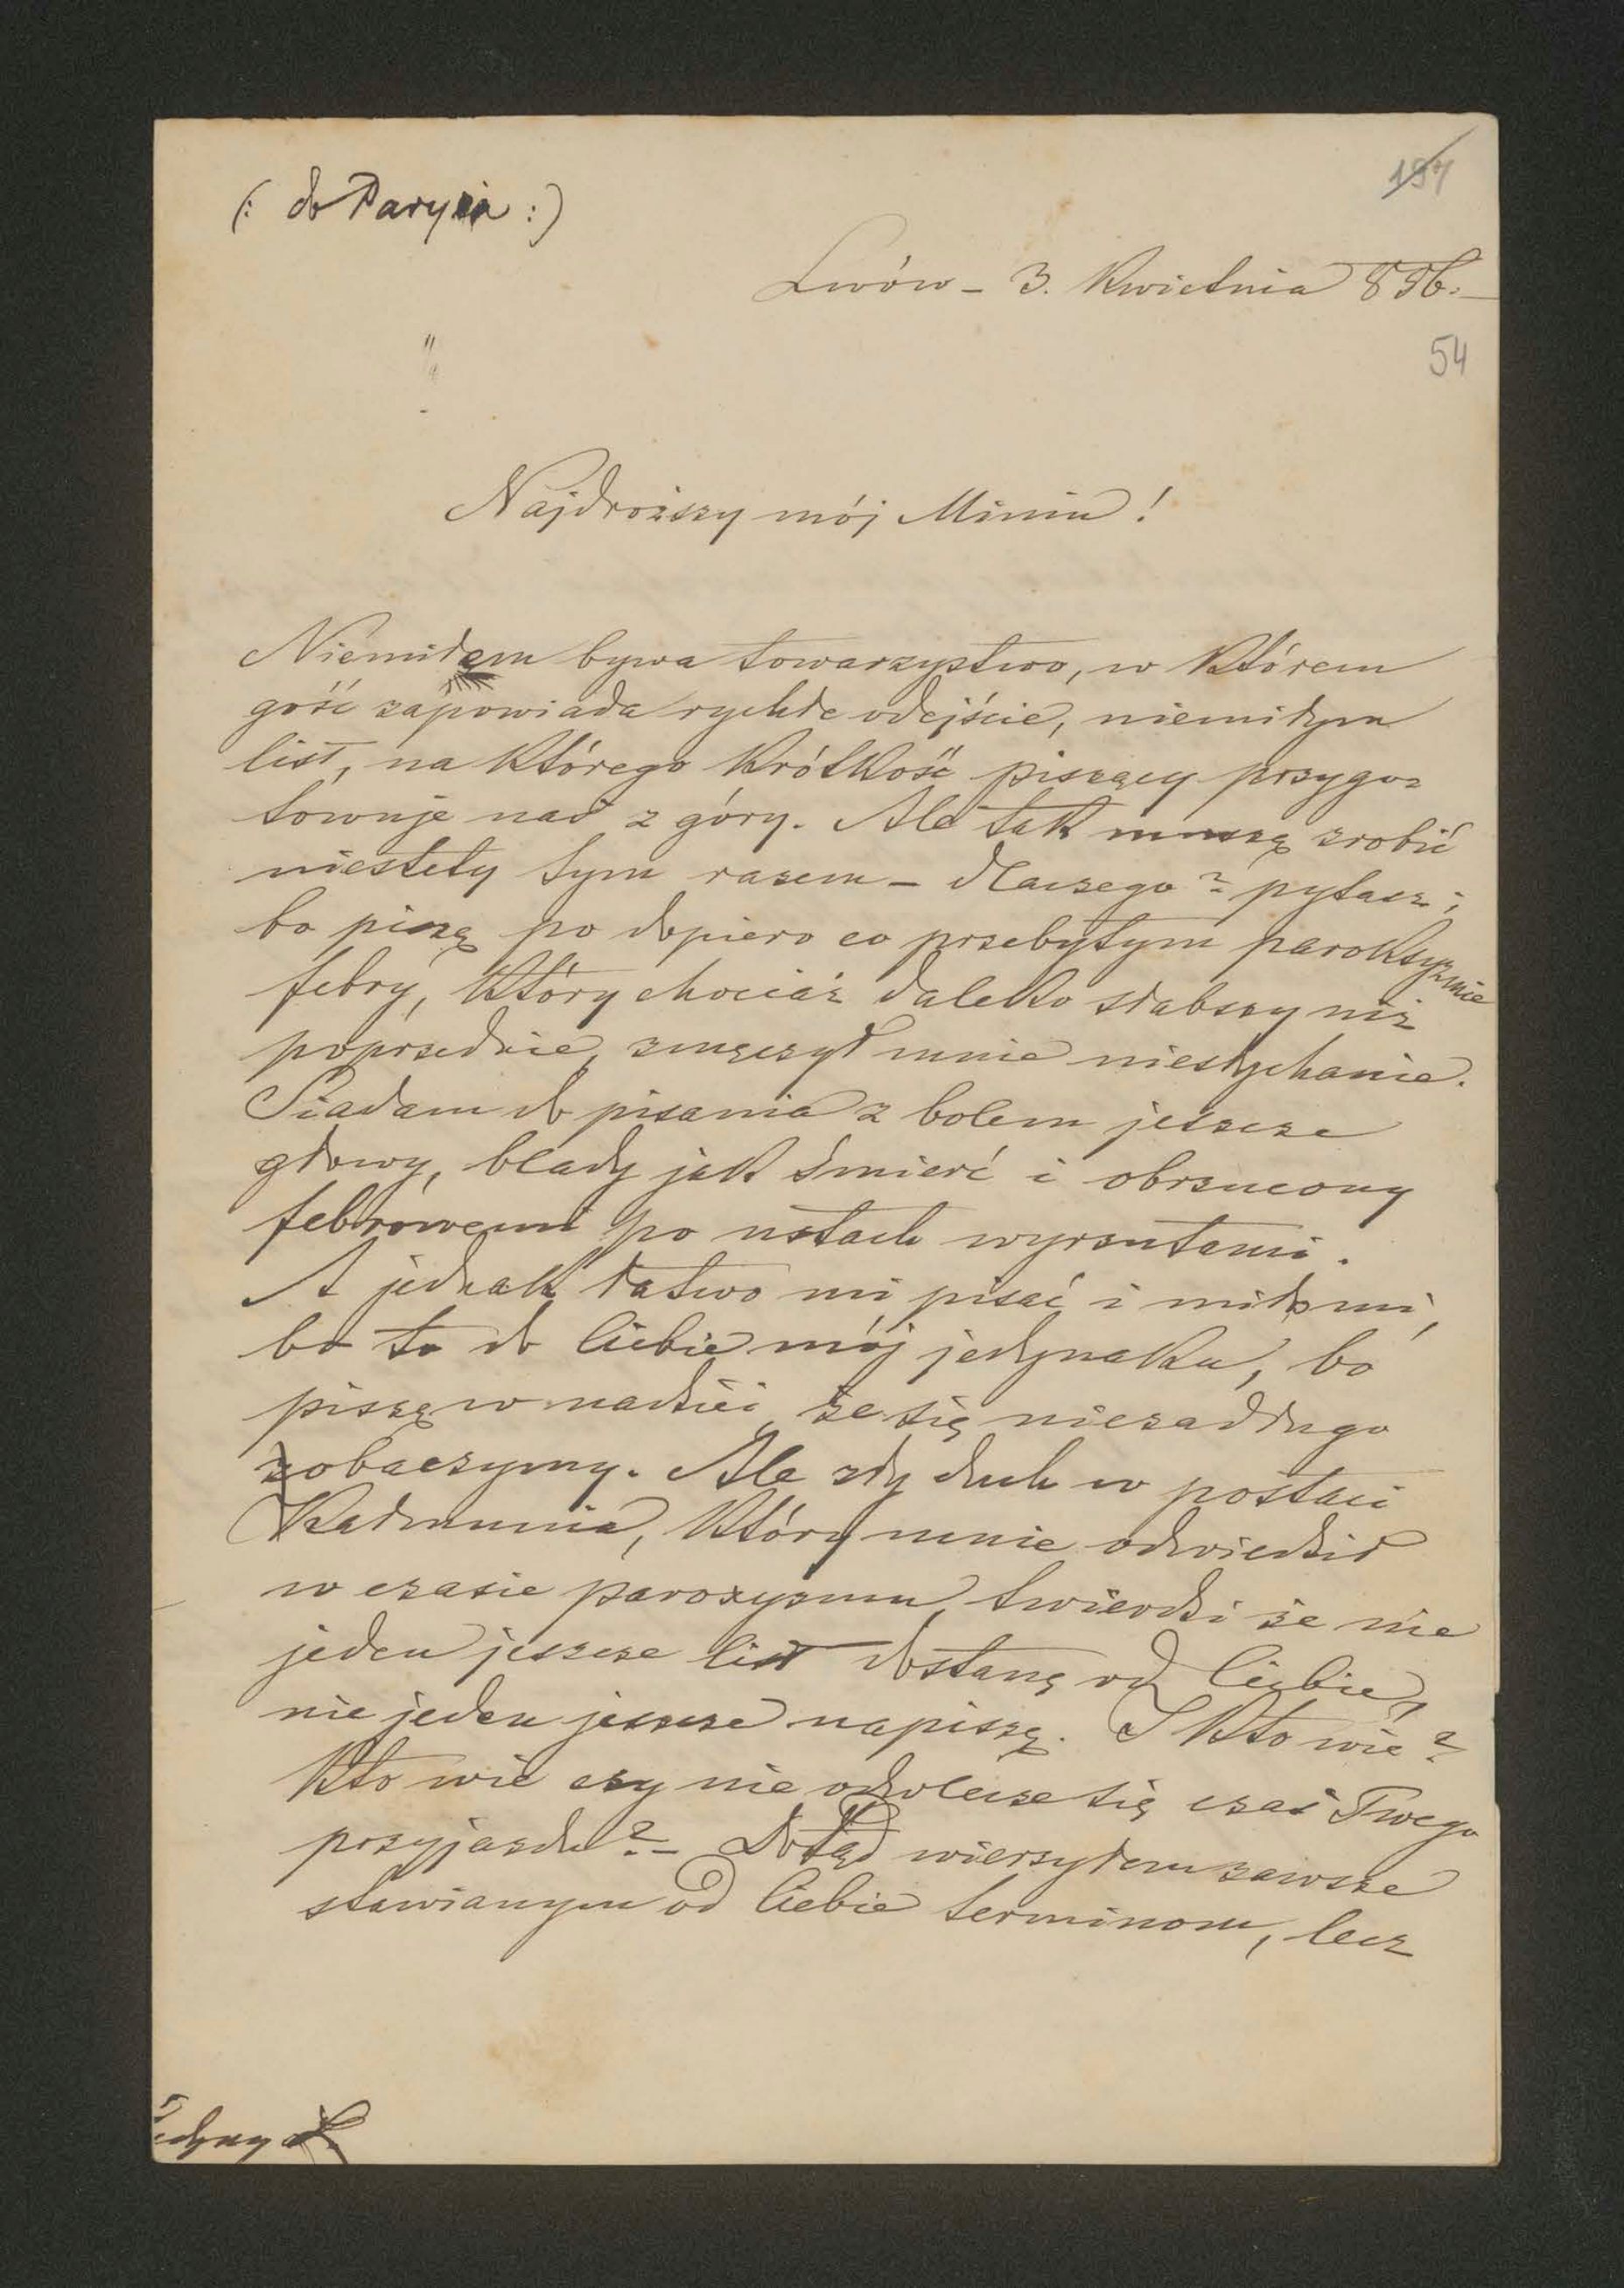 (: do Paryża :)
197
Lwów – 3. Kwietnia 856.
54
Najdroższy mój Miniu!
Niemiłem bywa towarzystwo, w którem
gość zapowiada rychłe odejście, niemiłym
list, na którego krótkość piszący przygo=
towuje nas z góry. Ale tak muszę zrobić
niestety tym razem – dlaczego? pytasz;
bo piszę po dopiero co przebytym paroksyzmie
febry, który chociaż daleko słabszy niż
poprzednie, zmęczył mnie niesłychanie.
Siadam do pisania z bolem jeszcze
głowy, blady jak śmierć i obrzucony
febrowemi po ustach wyrzutami.
A jednak łatwo mi pisać i miło mi,
bo to do Ciebie mój jedynaku, bo
piszę w nadziei że się niezadługo
zobaczymy. Ale zły duch w postaci
który mnie odwiedził
w czasie paroxyzmu, twierdzi że nie
jeden jeszcze list dostanę od Ciebie,
nie jeden jeszcze napiszę. I kto wie?
Kto wie czy nie odwlecze się czas Twego
przyjazdu? – Dotąd wierzyłem zawsze
stawianym od Ciebie terminom, lecz